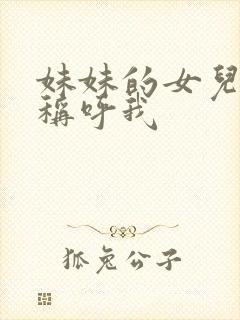 妹妹的女兒
稱呼我
狐兔公子